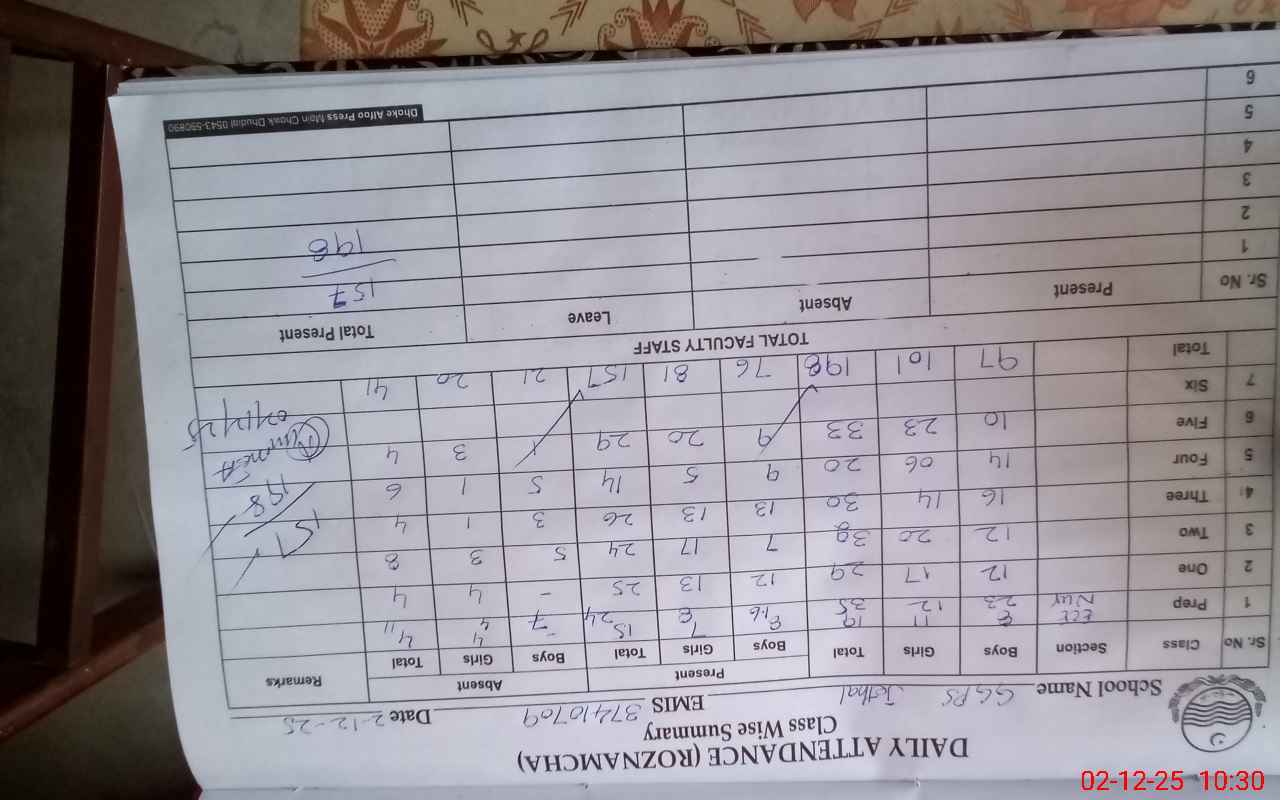 DAILY ATTENDANCE (ROZNAMCHA)
Class Wise Summary
School Name GGPS Jothal EMIS 37410709 Date 2-12-25
Sr. No Class Section Boys Girls Total Present Absent Remarks
Boys Girls Total Boys Girls Total
ECE 8 11 19 8 7 15 - 4 4
1 Prep Nur 23 12 35 16 8 24 7 4 11
2 One 12 17 29 12 13 25 - 4 4
3 Two 12 20 7 17 24 5 3 8
4 Three 16 14 30 13 13 26 3 1 4
5 Four 14 06 20 9 5 14 5 1 6
6 Five 10 23 33 9 20 29 1 3 4
7 Six
Total 97 101 198 76 81 157 21 20 41
157
198
02/12/25
TOTAL FACULTY STAFF
Sr. No Present Absent Leave Total Present
1
2
3
4
5
6
157
198
Dhoke Alfoo Press Main Chowk Dhudial 0543-590890
02-12-25 10:30